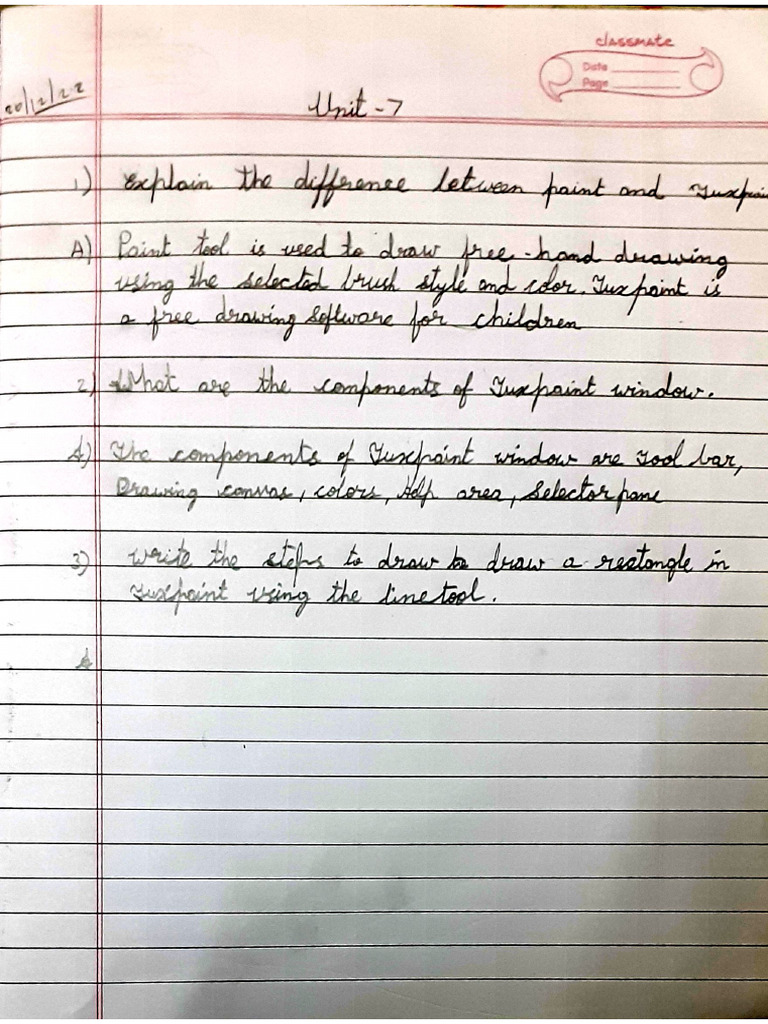 classmate
Date
Page
20/12/22
Unit - 7
1) Explain the difference between paint and Tuxpain
A) Paint tool is used to draw free-hand drawing
using the selected brush style and color. Tuxpaint is
a free drawing software for children
2) What are the components of Tuxpaint window.
A) The components of Tuxpaint window are Tool bar,
Drawing canvas, colors, Help area, Selector pane
3) write the steps to draw to draw a rectangle in
Tuxpaint using the line tool.
A